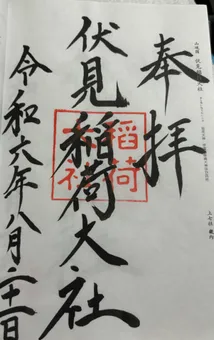 奉拝
伏見稲荷大社
令和六年八月二十一日